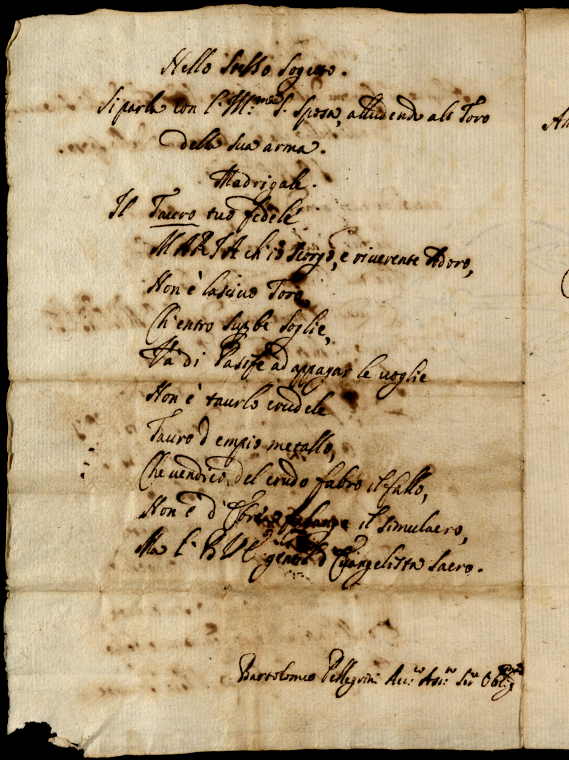 Nello stesso sogetto.
Si parla con l'Ill.ma S. Sposa, alludendo als Toro
della sua arma.
Madrigale.
Il Tauro tuo fedele
MARIA ch'io scorgo, e riuerente Adoro,
Non è lasciuo Toro
Ch'entro superbe soglie,
Và di Pasife ad appagar le uoglie
Non è taurlo crudele
Tauro d'empio metallo,
Che vendicò del crudo fabro il fallo,
Non è d' il simulacro,
Ma l' BUE gentil d'Euangelista sacro.
Bartolomeo Pellegrini